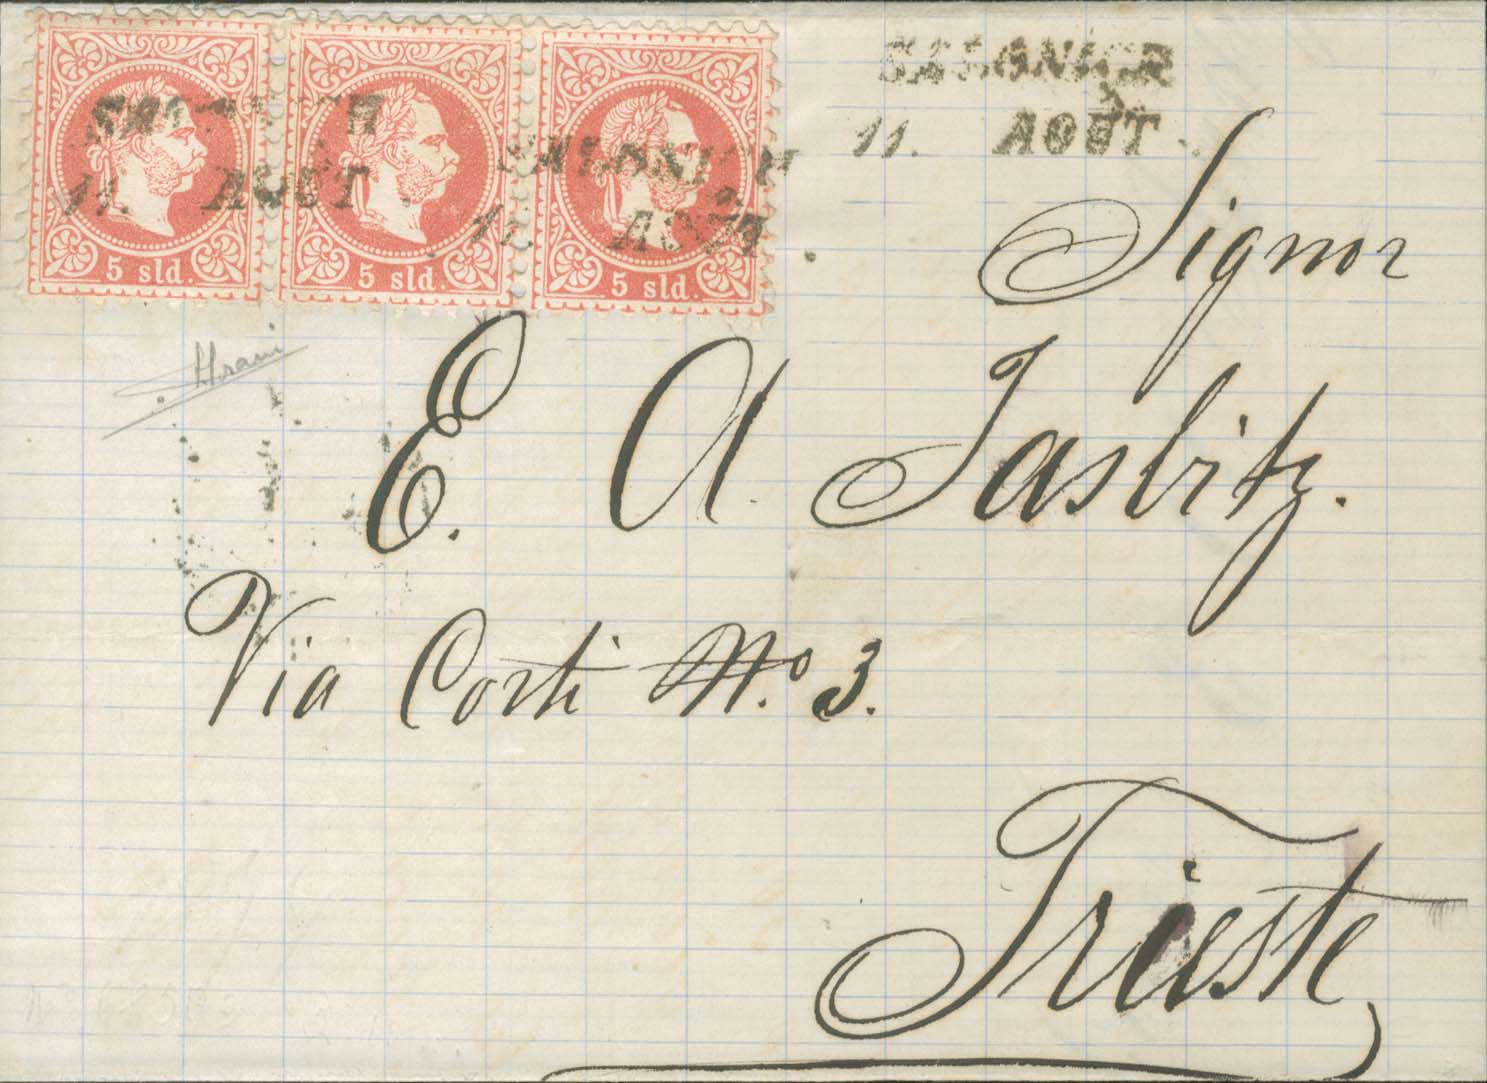 5 sld.
5 sld.
5 sld.
SALONICH
11. AOUT
SALONICH
11. AOUT
SALONICH
11. AOUT
Signor
E. A. Jasbitz.
Via Corti No. 3.
Trieste